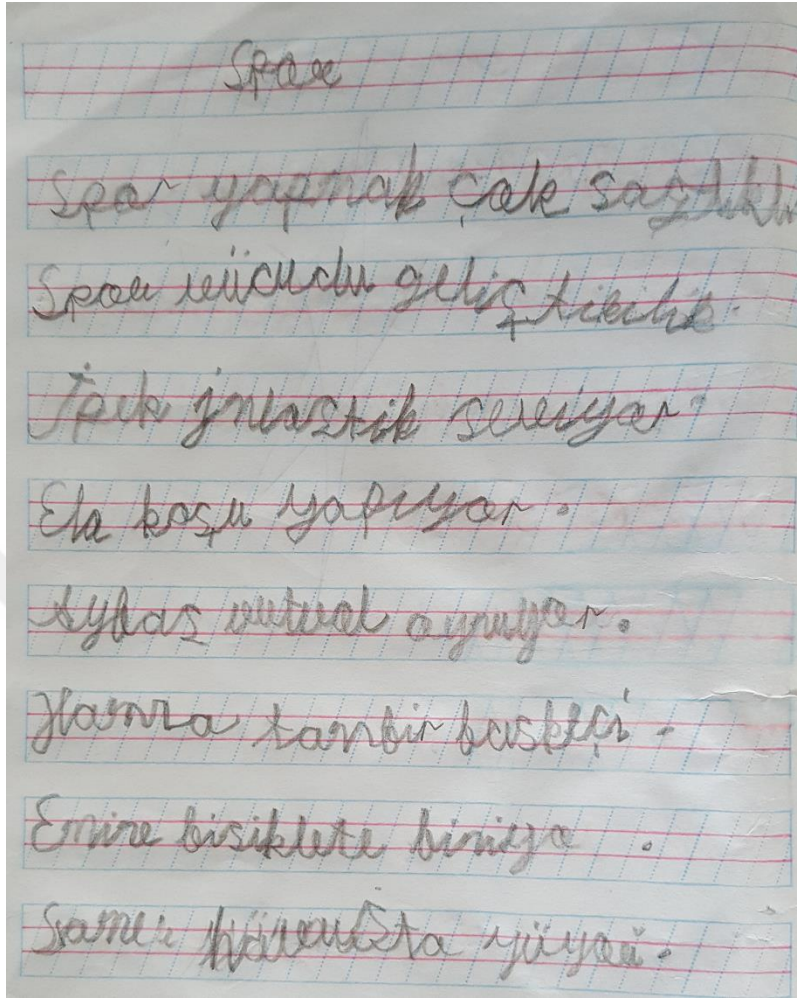 Spor
Spor yapmak çok sağlıklı
Spor vücudu geliştirilir.
İpek jnlastik seviyor.
Ela koşu yapıyor.
Aybaş vutval oynuyor.
Hamza tambir basketçi.
Emine bisiklete biniyo.
havuuzta yüyoü.